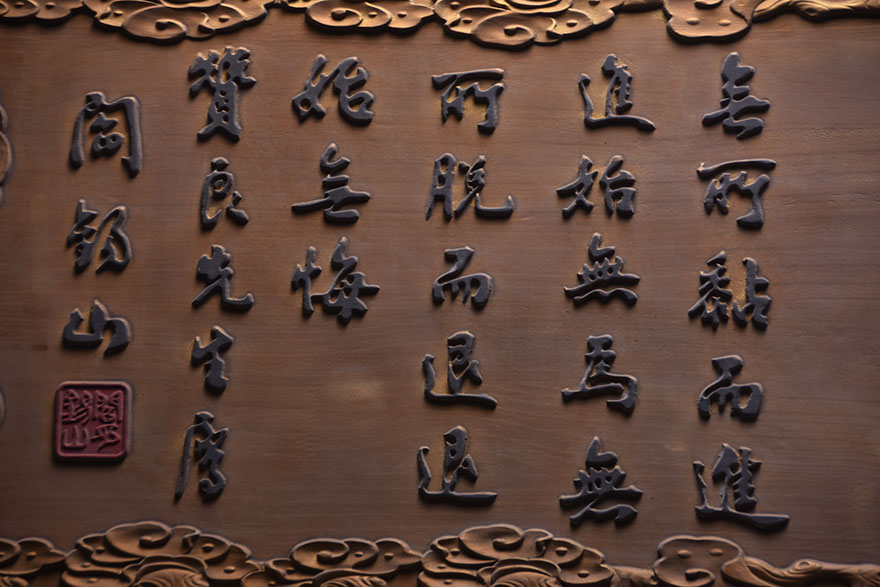 無所黏而進
進始無為無
所脫而退退
始無悔
贊良先生屬
閻錫山
閻錫山印